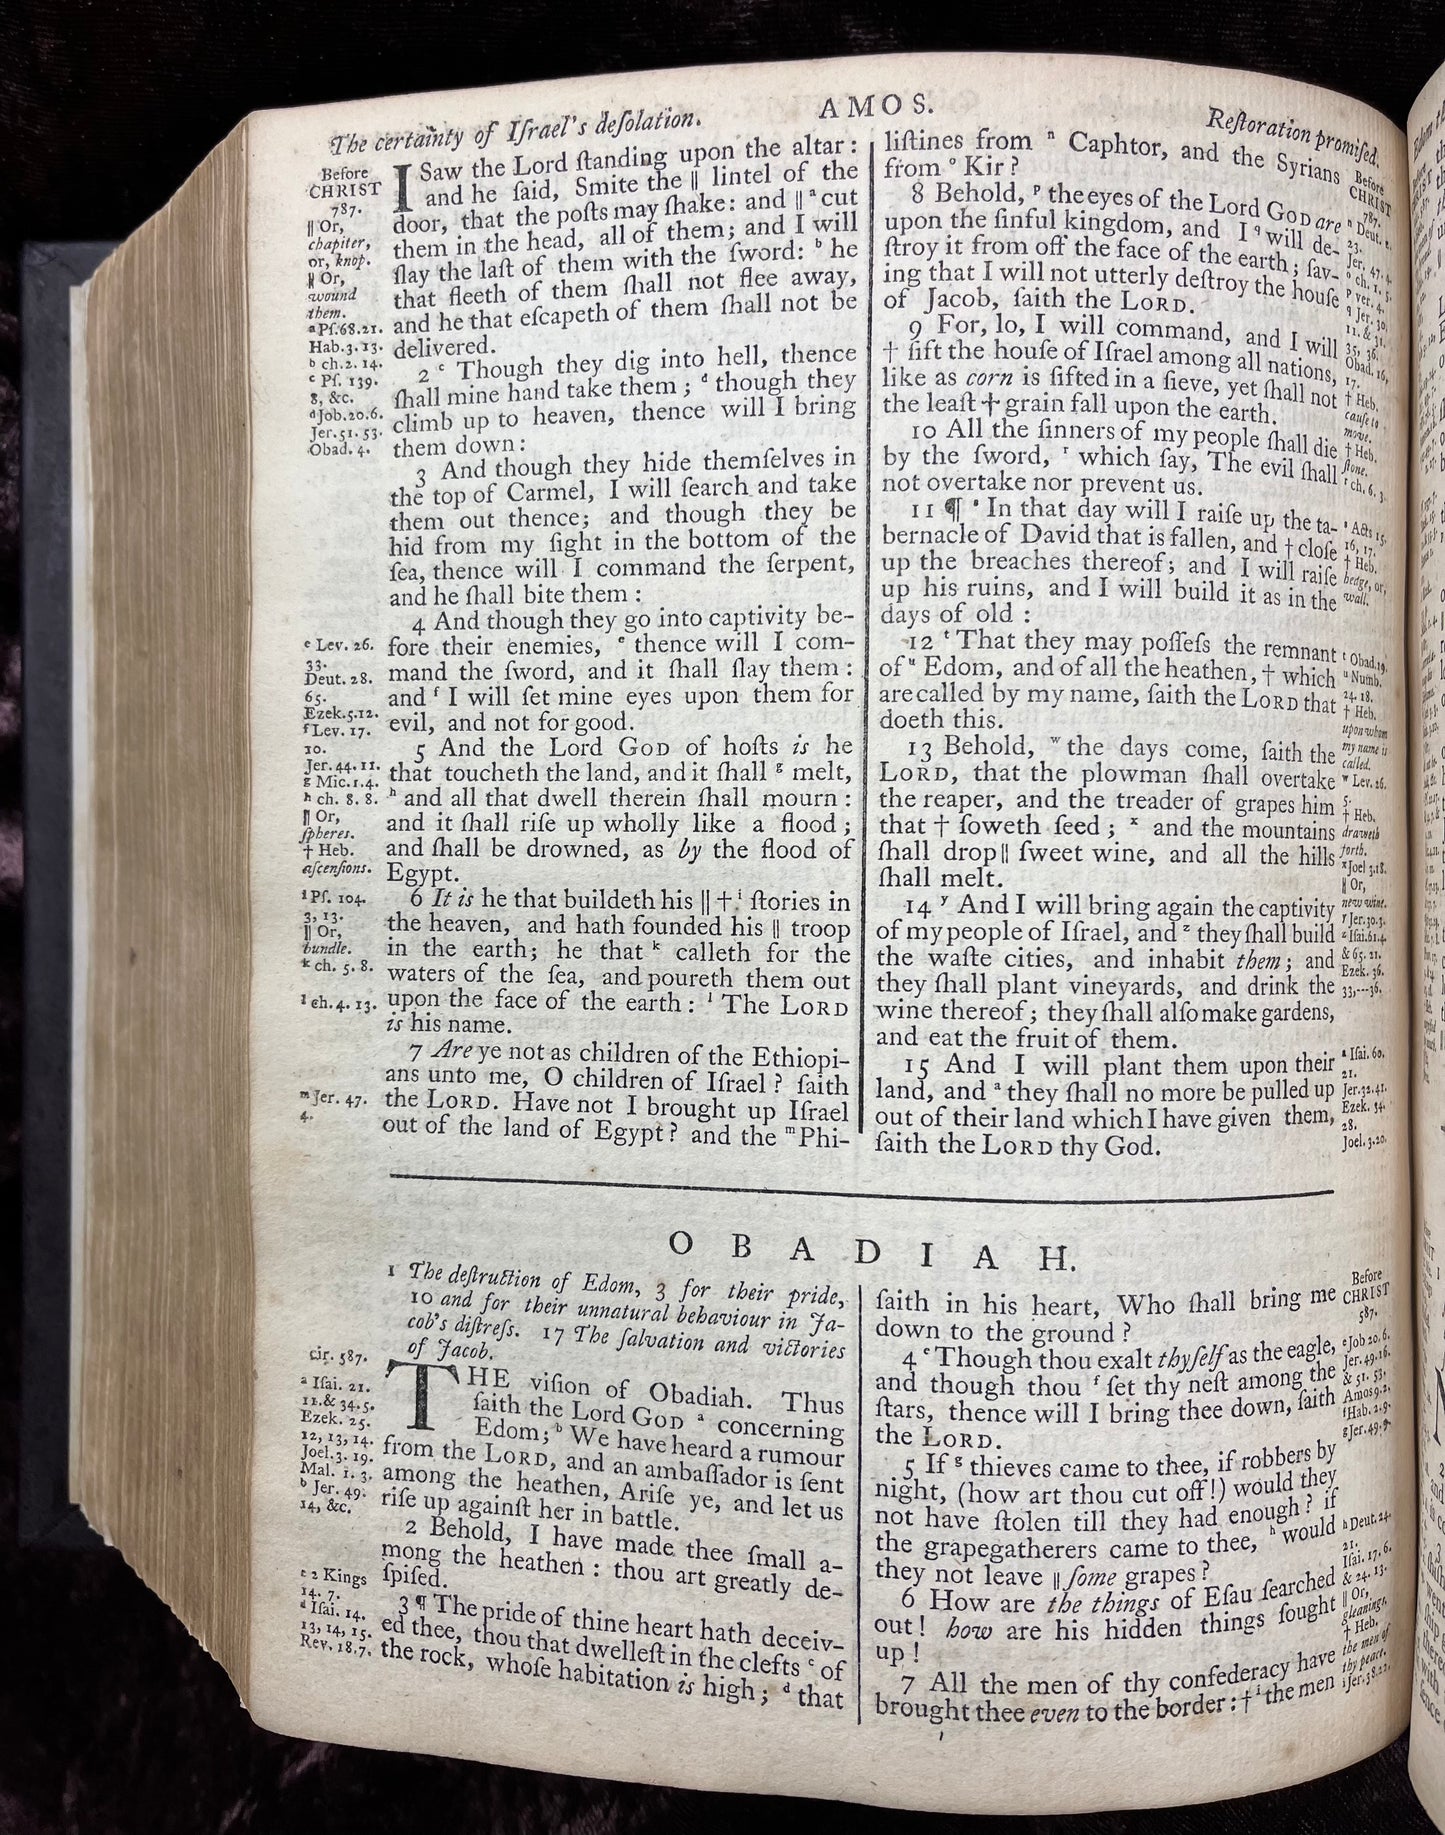 The certainty of Iſrael's deſolation.
AMOS.
Reſtoration promiſed.
Before
CHRIST
787.
‖ Or,
chapiter,
or, knop.
‖ Or,
wound
them.
ᵃ Pſ.68.21.
Hab.3.13.
ᵇ ch.2.14.
ᶜ Pſ. 139.
8, &c.
ᵈ Job.20.6.
Jer.51.53.
Obad. 4.
ᵉ Lev. 26.
33.
Deut. 28.
65.
Ezek.5.12.
ᶠ Lev. 17.
10.
Jer. 44. 11.
ᵍ Mic.1.4.
ʰ ch. 8. 8.
‖ Or,
ſpheres.
† Heb.
aſcenſions.
ⁱ Pſ. 104.
3, 13.
‖ Or,
bundle.
ᵏ ch. 5. 8.
ˡ ch. 4. 13.
ᵐ Jer. 47.
4.
I Saw the Lord ſtanding upon the altar:
and he ſaid, Smite the ‖ lintel of the
door, that the poſts may ſhake: and ‖ ᵃ cut
them in the head, all of them; and I will
ſlay the laſt of them with the ſword: ᵇ he
that fleeth of them ſhall not flee away,
and he that eſcapeth of them ſhall not be
delivered.
2 ᶜ Though they dig into hell, thence
ſhall mine hand take them; ᵈ though they
climb up to heaven, thence will I bring
them down:
3 And though they hide themſelves in
the top of Carmel, I will ſearch and take
them out thence; and though they be
hid from my ſight in the bottom of the
ſea, thence will I command the ſerpent,
and he ſhall bite them:
4 And though they go into captivity be-
fore their enemies, ᵉ thence will I com-
mand the ſword, and it ſhall ſlay them:
and ᶠ I will ſet mine eyes upon them for
evil, and not for good.
5 And the Lord GOD of hoſts is he
that toucheth the land, and it ſhall ᵍ melt,
ʰ and all that dwell therein ſhall mourn:
and it ſhall riſe up wholly like a flood;
and ſhall be drowned, as by the flood of
Egypt.
6 It is he that buildeth his ‖ † ⁱ ſtories in
the heaven, and hath founded his ‖ troop
in the earth; he that ᵏ calleth for the
waters of the ſea, and poureth them out
upon the face of the earth: ˡ The LORD
is his name.
7 Are ye not as children of the Ethiopi-
ans unto me, O children of Iſrael? ſaith
the LORD. Have not I brought up Iſrael
out of the land of Egypt? and the ᵐ Phi-
liſtines from ⁿ Caphtor, and the Syrians
from ᵒ Kir?
8 Behold, ᵖ the eyes of the Lord GOD are
upon the ſinful kingdom, and I ᑫ will de-
ſtroy it from off the face of the earth; ſav-
ing that I will not utterly deſtroy the houſe
of Jacob, ſaith the LORD.
9 For, lo, I will command, and I will
† ſift the houſe of Iſrael among all nations,
like as corn is ſifted in a ſieve, yet ſhall not
the leaſt † grain fall upon the earth.
10 All the ſinners of my people ſhall die
by the ſword, ʳ which ſay, The evil ſhall
not overtake nor prevent us.
11 ¶ ˢ In that day will I raiſe up the ta-
bernacle of David that is fallen, and † cloſe
up the breaches thereof; and I will raiſe
up his ruins, and I will build it as in the
days of old:
12 ᵗ That they may poſſeſs the remnant
of ᵘ Edom, and of all the heathen, † which
are called by my name, ſaith the LORD that
doeth this.
13 Behold, ʷ the days come, ſaith the
LORD, that the plowman ſhall overtake
the reaper, and the treader of grapes him
that † ſoweth ſeed; ˣ and the mountains
ſhall drop ‖ ſweet wine, and all the hills
ſhall melt.
14 ʸ And I will bring again the captivity
of my people of Iſrael, and ᶻ they ſhall build
the waſte cities, and inhabit them; and
they ſhall plant vineyards, and drink the
wine thereof; they ſhall alſo make gardens,
and eat the fruit of them.
15 And I will plant them upon their
land, and ᵃ they ſhall no more be pulled up
out of their land which I have given them,
ſaith the LORD thy God.
Before
CHRIST
787.
ⁿ Deut. 2.
23.
Jer. 47. 4.
ᵒ ch. 1. 5.
ᵖ ver. 4.
ᑫ Jer. 30.
11. & 31.
35, 36.
Obad. 16,
17.
† Heb.
cauſe to
move.
† Heb.
ſtone.
ʳ ch. 6. 3.
ˢ Acts 15.
16, 17.
† Heb.
hedge, or,
wall.
ᵗ Obad.19.
ᵘ Numb.
24. 18.
† Heb.
upon whom
my name is
called.
ʷ Lev. 26.
5.
† Heb.
draweth
forth.
ˣ Joel 3.18.
‖ Or,
new wine.
ʸ Jer.30.3.
ᶻ Iſai.61.4.
& 65. 21.
Ezek. 36.
33,---36.
ᵃ Iſai. 60.
21.
Jer.32.41.
Ezek. 34.
28.
Joel. 3.20.
OBADIAH.
1 The deſtruction of Edom, 3 for their pride,
10 and for their unnatural behaviour in Ja-
cob's diſtreſs. 17 The ſalvation and victories
of Jacob.
cir. 587.
ᵃ Iſai. 21.
11.& 34.5.
Ezek. 25.
12, 13, 14.
Joel.3. 19.
Mal. 1. 3.
ᵇ Jer. 49.
14, &c.
ᶜ 2 Kings
14. 7.
ᵈ Iſai. 14.
13, 14, 15.
Rev. 18.7.
THE viſion of Obadiah. Thus
ſaith the Lord GOD ᵃ concerning
Edom; ᵇ We have heard a rumour
from the LORD, and an ambaſſador is ſent
among the heathen, Ariſe ye, and let us
riſe up againſt her in battle.
2 Behold, I have made thee ſmall a-
mong the heathen: thou art greatly de-
ſpiſed.
3 ¶ The pride of thine heart hath deceiv-
ed thee, thou that dwelleſt in the clefts ᶜ of
the rock, whoſe habitation is high; ᵈ that
ſaith in his heart, Who ſhall bring me
down to the ground?
4 ᵉ Though thou exalt thyſelf as the eagle,
and though thou ᶠ ſet thy neſt among the
ſtars, thence will I bring thee down, ſaith
the LORD.
5 If ᵍ thieves came to thee, if robbers by
night, (how art thou cut off!) would they
not have ſtolen till they had enough? if
the grapegatherers came to thee, ʰ would
they not leave ‖ ſome grapes?
6 How are the things of Eſau ſearched
out! how are his hidden things ſought
up!
7 All the men of thy confederacy have
brought thee even to the border: † ⁱ the men
Before
CHRIST
587.
ᵉ Job 20. 6.
Jer. 49.16.
& 51. 53.
Amos 9.2.
ᶠ Hab. 2.9.
ᵍ Jer.49.9.
ʰ Deut.24.
21.
Iſai. 17. 6.
& 24. 13.
‖ Or,
gleanings.
† Heb.
the men of
thy peace.
ⁱ Jer.38.22.